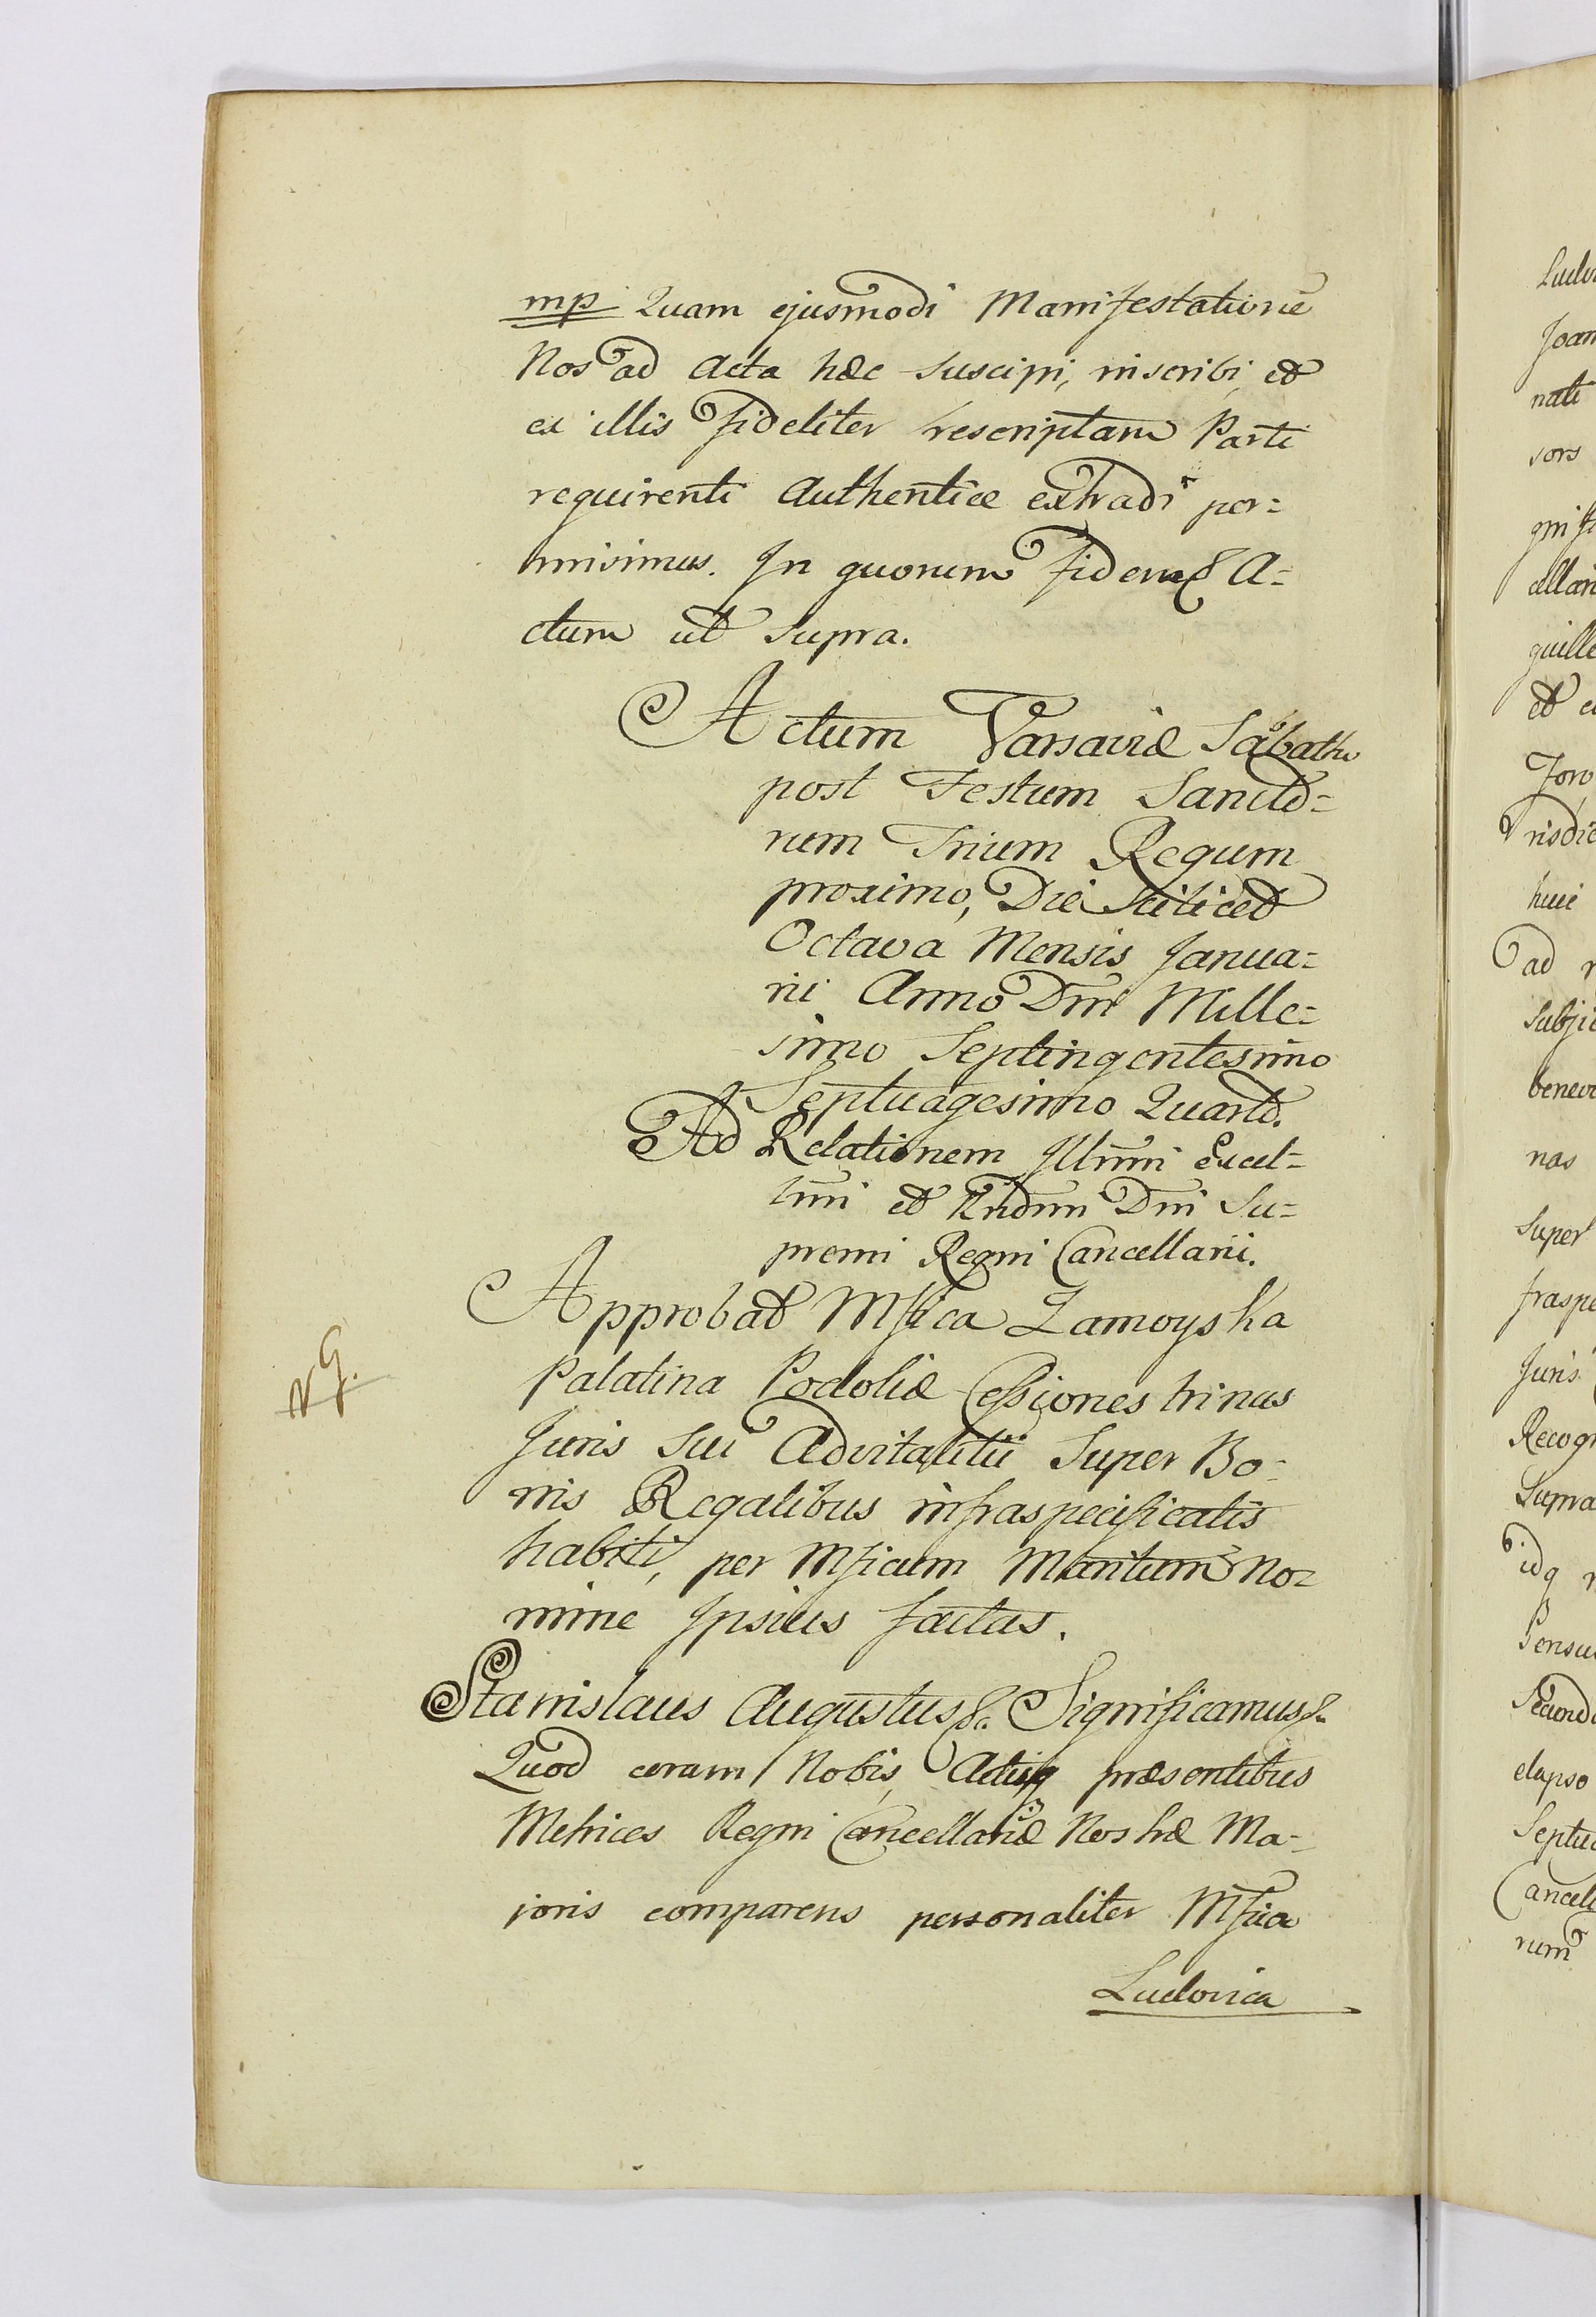 mp Quam ejusmodi Manifestationē
Nos ad Acta hæc suscipi, inscribi, et
ex illis fideliter rescriptam Parti
requirenti Authentice extradi per=
misimus. In quorum fidem & A=
ctum ut supra.
Actum Varsaviæ Sabatho
post Festum Sancto=
rum Trium Regum
proximo, Die scilicet
Octava Mensis Janua=
rii Anno Dni Mille=
simo Septingentesimo
Septuagesimo Quarto.
Ad Relationem Illmi Excel=
lmi et Rndmi Dni Su=
premi Regni Cancellarii.
Approbat Mfica Zamoyska
NG.
Palatina Podoliæ Cessiones trinas
Juris sui Advitalitii super Bo=
nis Regalibus infraspecificatis
habiti, per Mficum Maritum No=
mine Ipsius factas.
Stanislaus Augustus &c. Significamus &c.
Quod coram Nobis, Actisq præsentibus
Metrices Regni Cancellariæ Nostræ Ma=
joris comparens personaliter Mfica
Ludovica
Joan
nati
sors
cellari
quille
et
Foro
risdic
huic
ad
Subjic
benevo
nas
super
fraspe
Juris
Recogn
Supra
idq
Secund
elapso
Septua
Cancell
rum